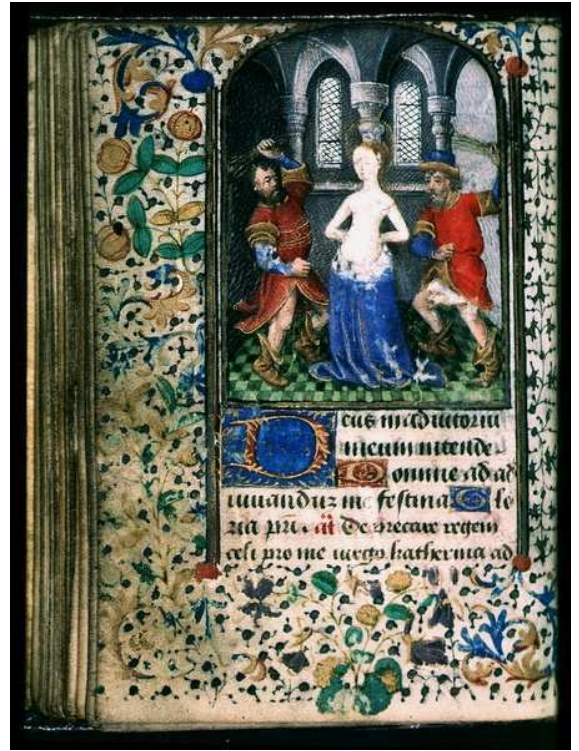 Deus in adiutoriu
meum intende
Domine ad ad
iuuanduz me festina Glo
ria pri. añ Deprecare regem
celi pro me uirgo katherina ad